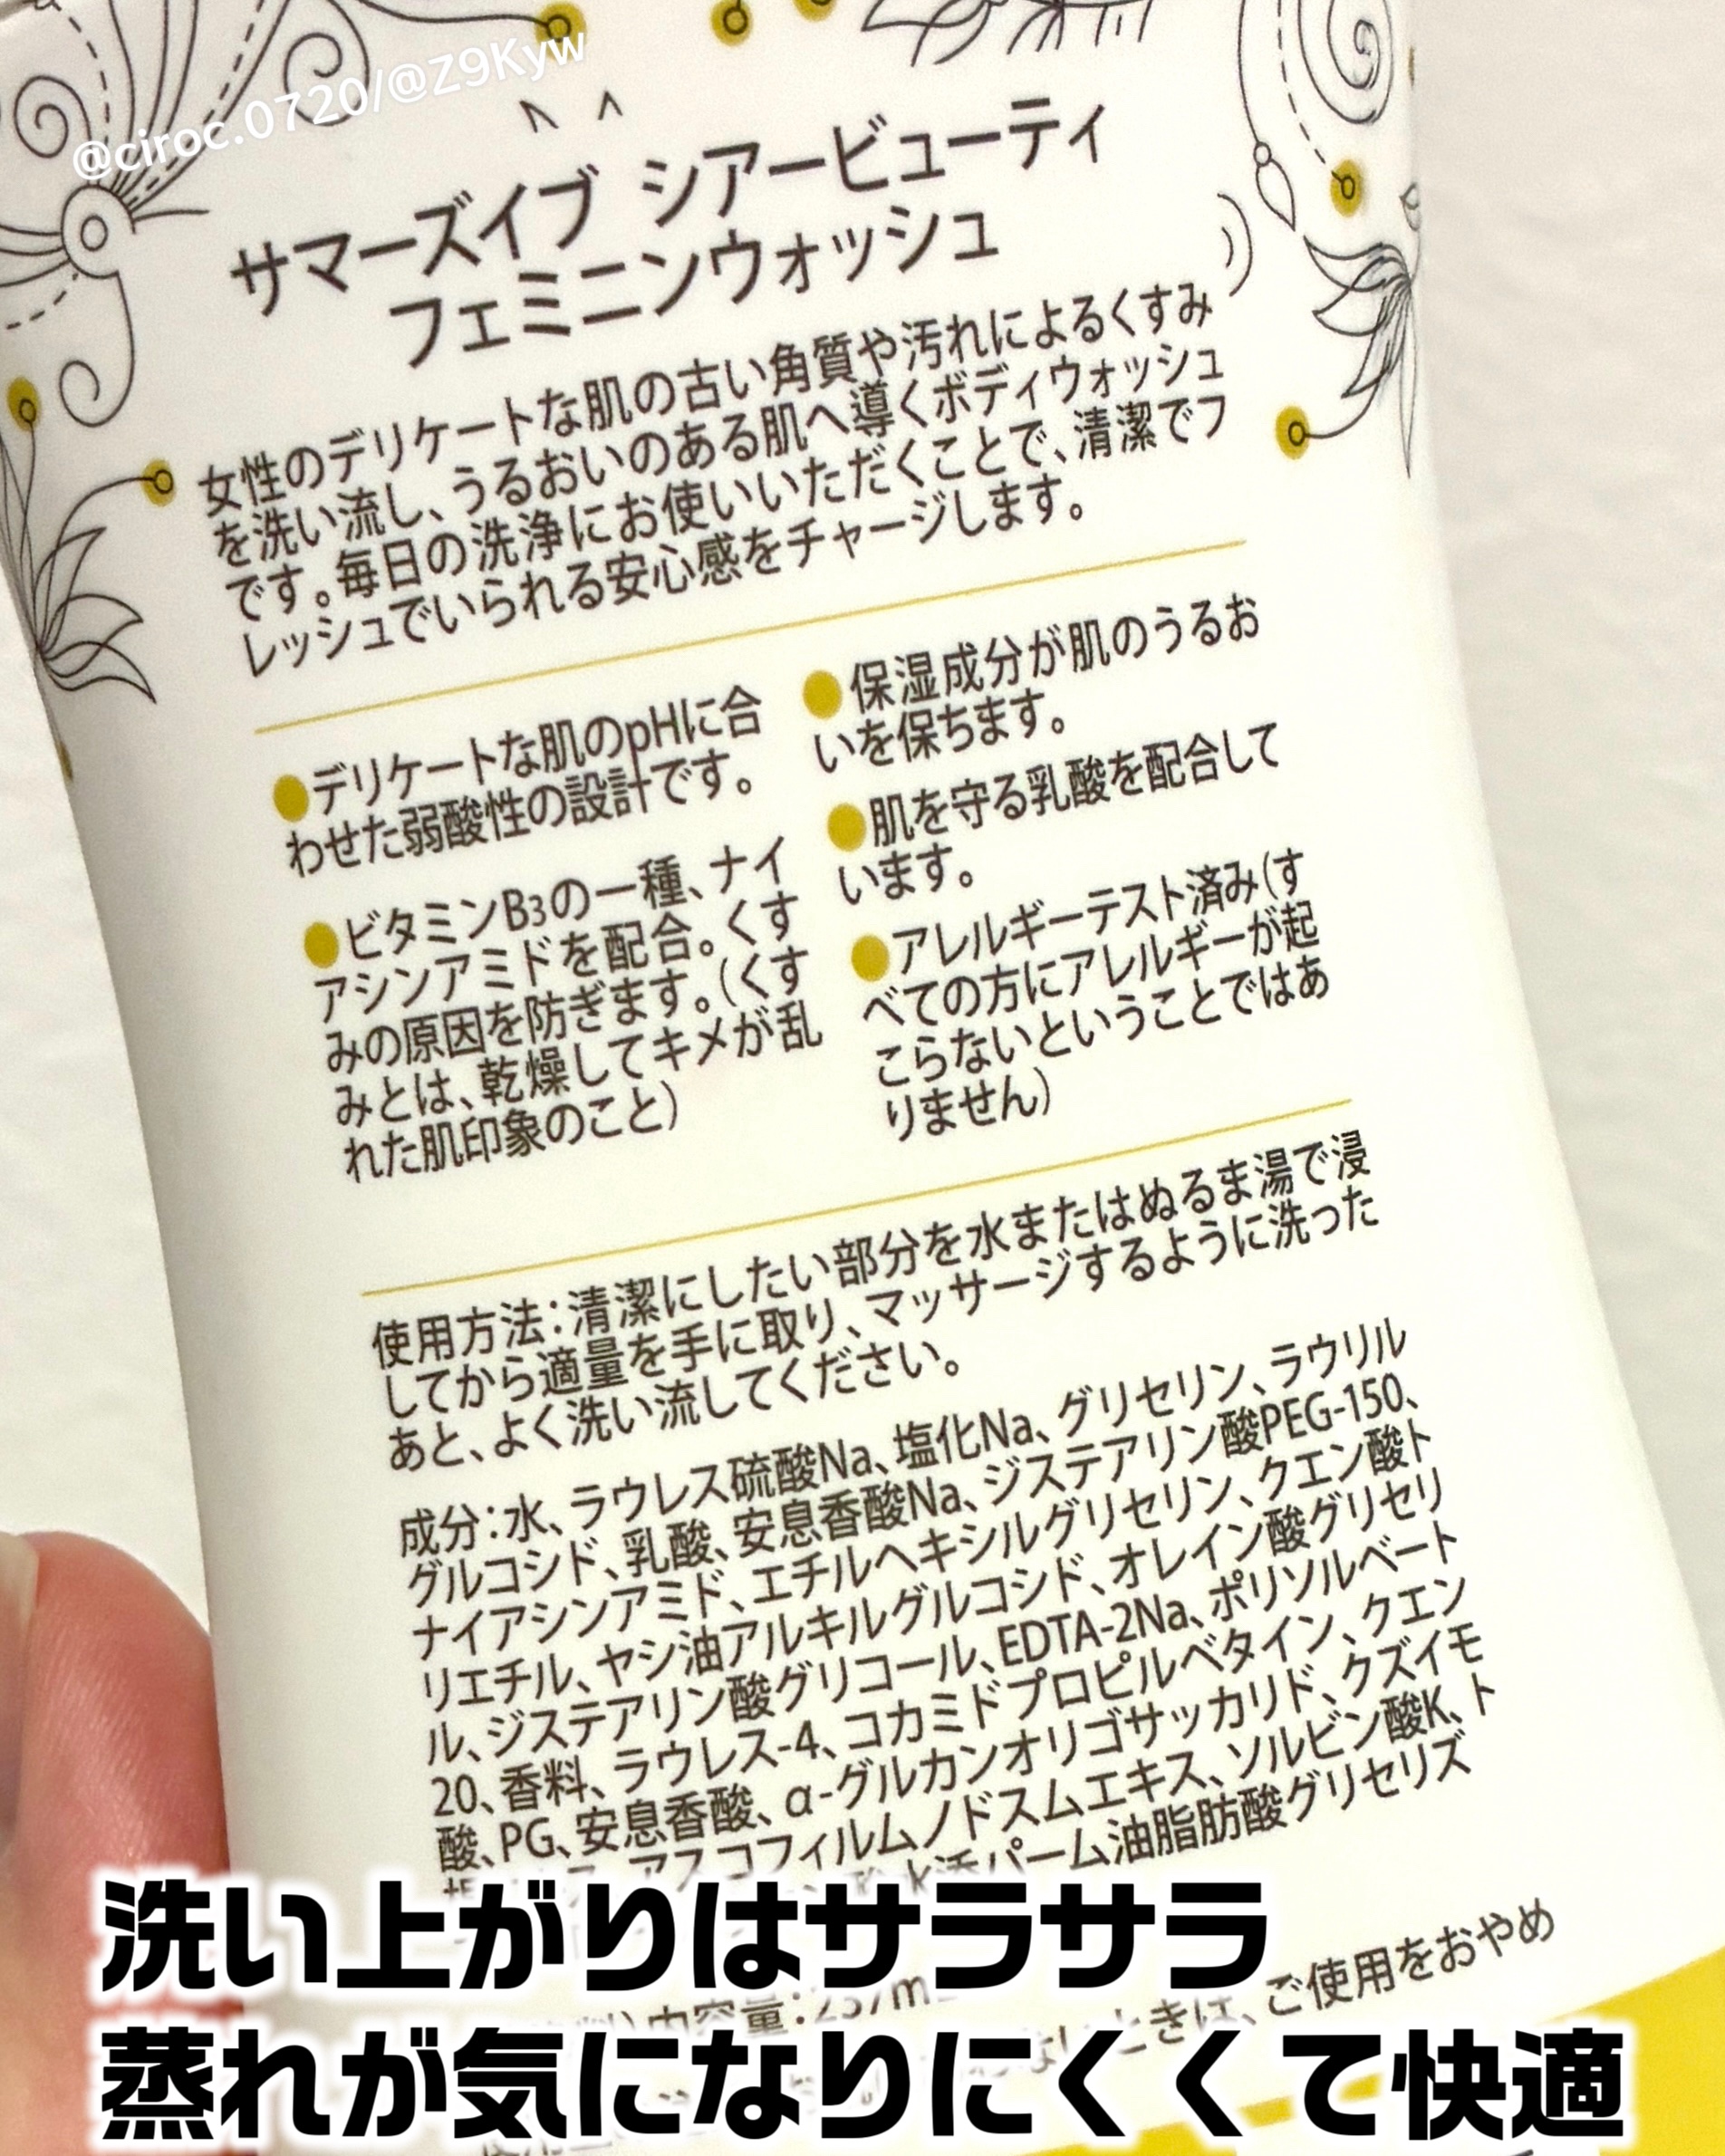 @ciroc.0720/@Z9Kyw
サマーズイブ シアービューティ
フェミニンウォッシュ
女性のデリケートな肌の古い角質や汚れによるくすみ
を洗い流し、うるおいのある肌へ導くボディウォッシュ
です。毎日の洗浄にお使いいただくことで、清潔でフ
レッシュでいられる安心感をチャージします。
●デリケートな肌のpHに合
わせた弱酸性の設計です。
●ビタミンB3の一種、ナイ
アシンアミドを配合。くす
みの原因を防ぎます。(くす
みとは、乾燥してキメが乱
れた肌印象のこと)
●保湿成分が肌のうるお
いを保ちます。
●肌を守る乳酸を配合して
います。
●アレルギーテスト済み(す
べての方にアレルギーが起
こらないということではあ
りません)
使用方法：清潔にしたい部分を水またはぬるま湯で浸
してから適量を手に取り、マッサージするように洗った
あと、よく洗い流してください。
成分：水、ラウレス硫酸Na、塩化Na、グリセリン、ラウリル
グルコシド、乳酸、安息香酸Na、ジステアリン酸PEG-150、
ナイアシンアミド、エチルヘキシルグリセリン、クエン酸ト
リエチル、ヤシ油アルキルグルコシド、オレイン酸グリセリ
ル、ジステアリン酸グリコール、EDTA-2Na、ポリソルベート
20、香料、ラウレス-4、コカミドプロピルベタイン、クエン
酸、PG、安息香酸、α-グルカンオリゴサッカリド、クズイモ
アスコフィルムノドスムエキス、ソルビン酸K、ト
水添パーム油脂肪酸グリセリズ
内容量：237m
ときは、ご使用をおやめ
洗い上がりはサラサラ
蒸れが気になりにくくて快適